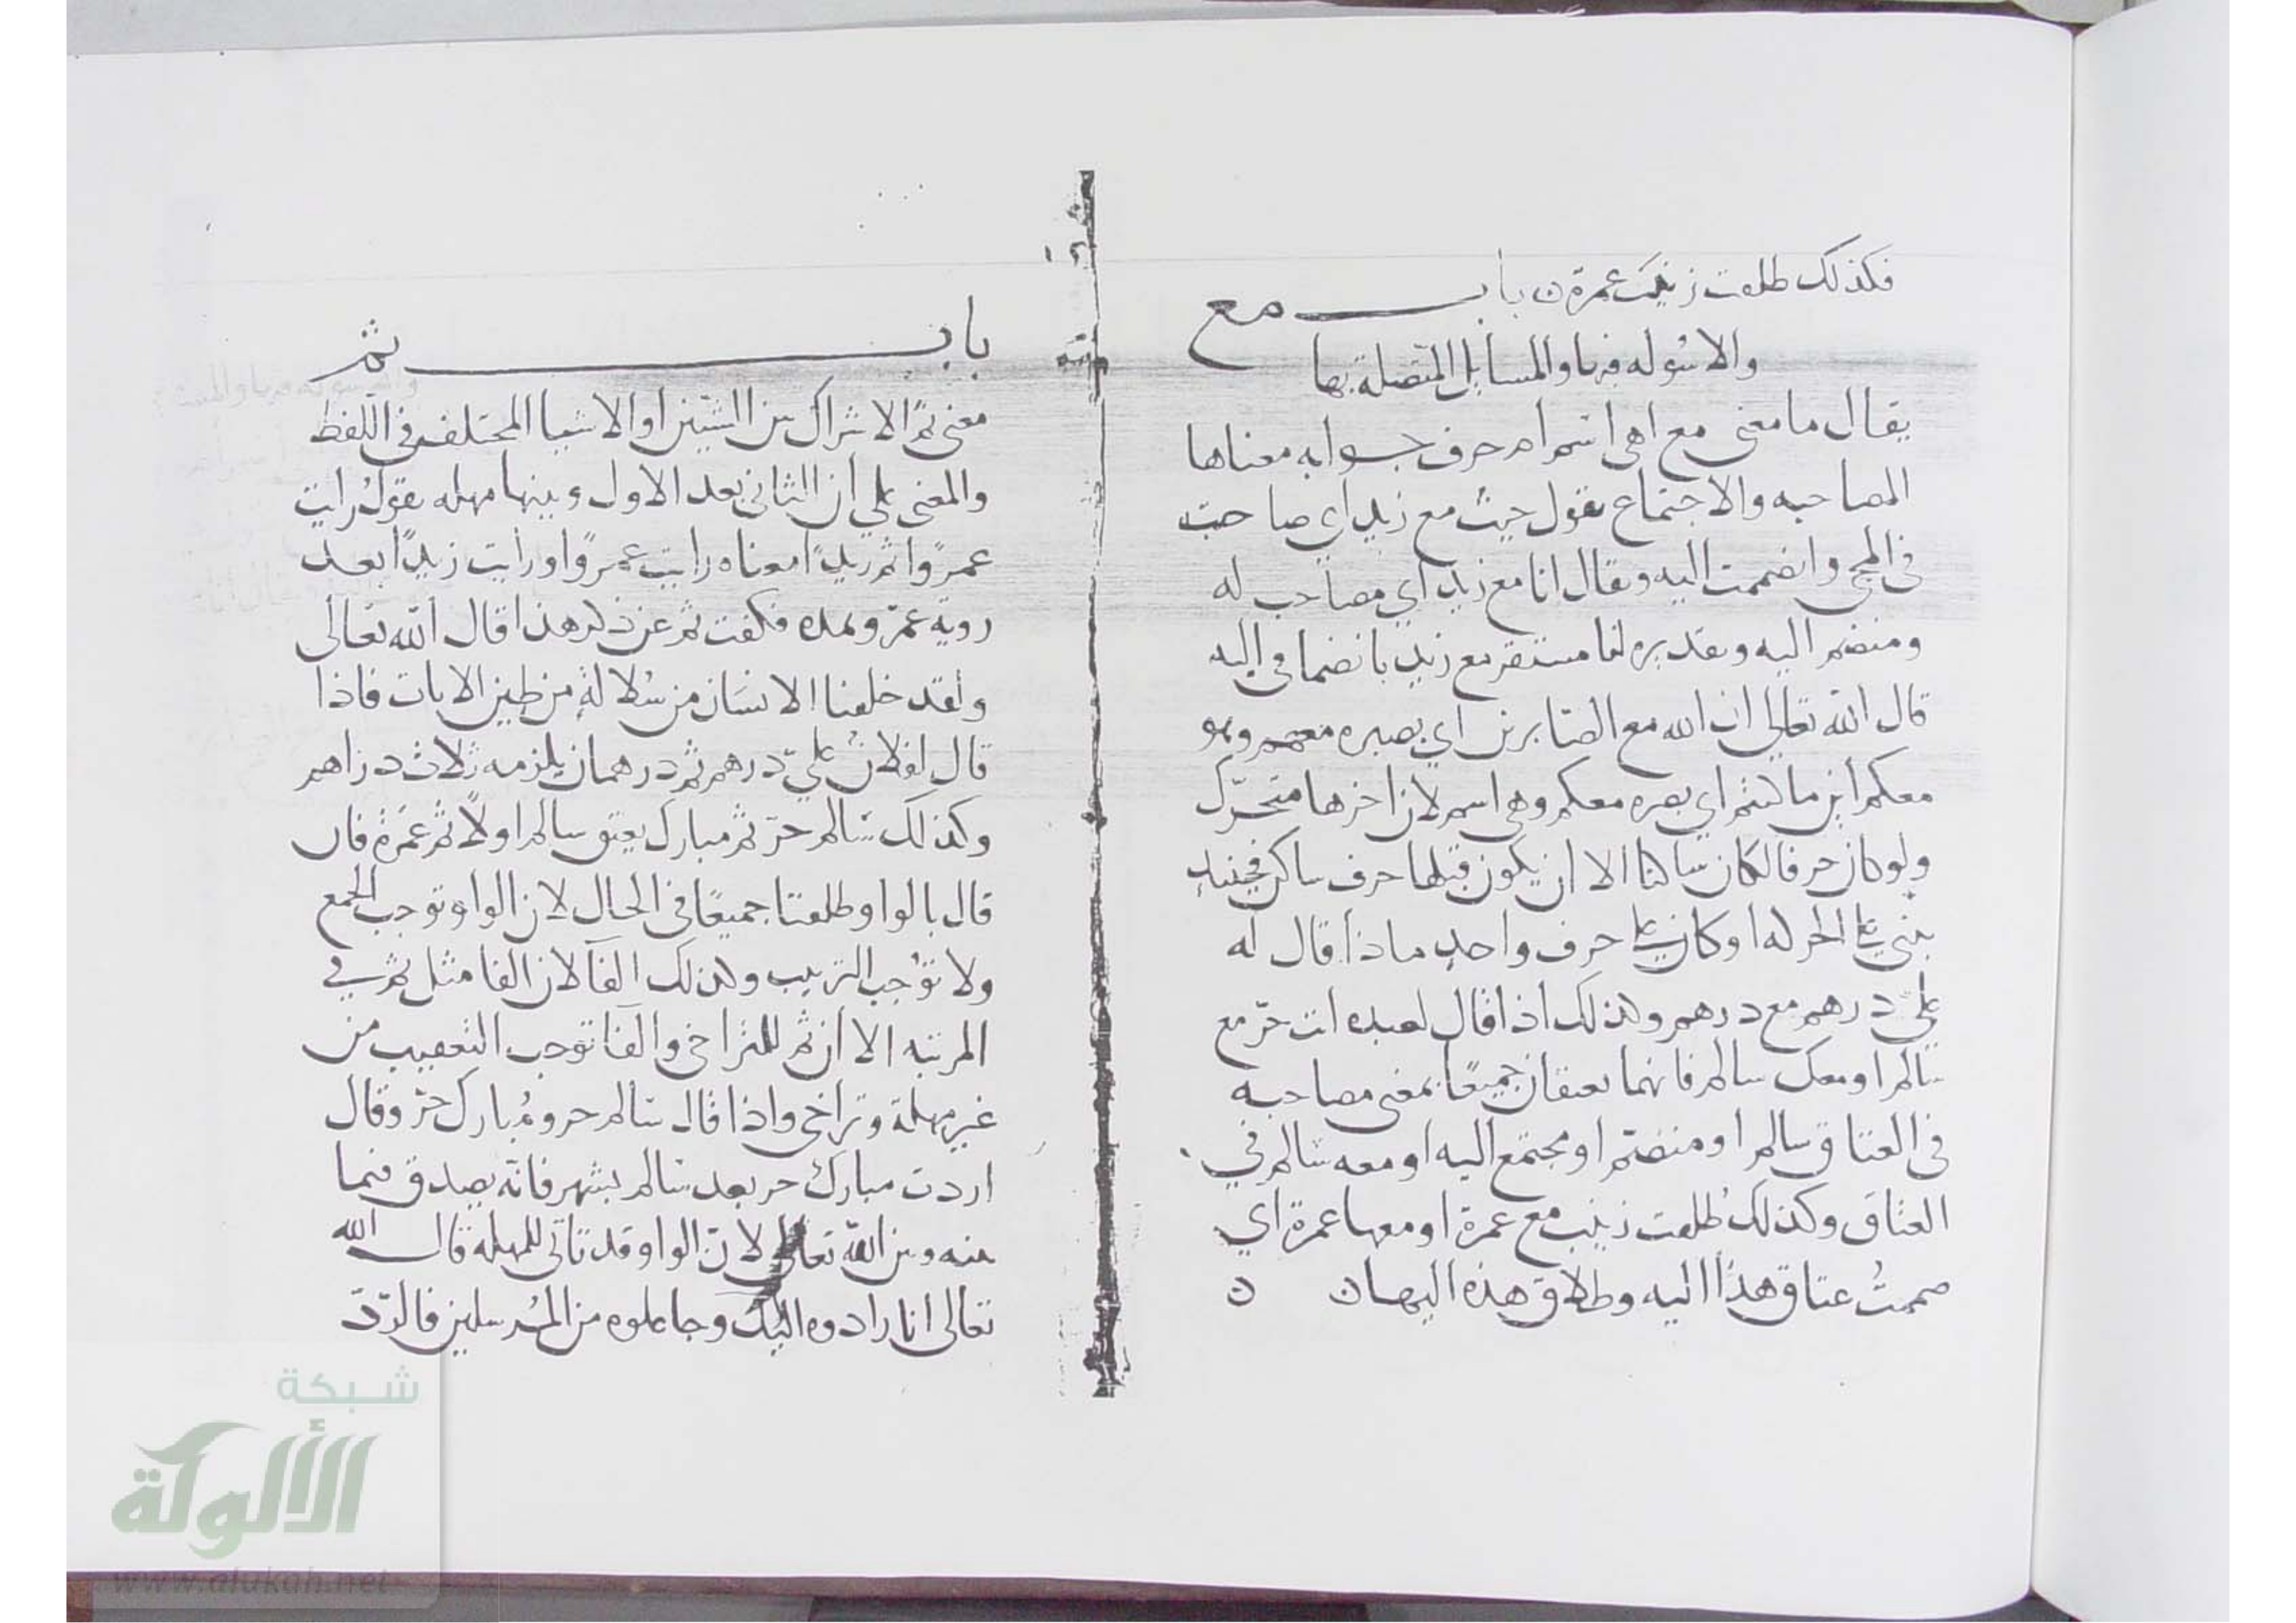 فكذلك طلقت زينب عمرة ن باب مع
والاسوله فيها والمسايل المتصله بها
يقال ما معنى مع اهي اسم ام حرف جوابه معناها
المصاحبه والاجتماع تقول جيت مع زيد اي صاحبت
في المجي وانضممت اليه ويقال انا مع زيد اي مصاحب له
ومنضم اليه وتقديره انا مستقر مع زيد بانضمامي اليه
قال الله تعالى ان الله مع الصابرين اي بصبره معهم وهو
معكم اين ما كنتم اي بصره معكم وهي اسم لان اخرها متحرك
ولو كان حرفا لكان ساكنا الا ان يكون قبلها حرف ساكن فحينيذ
بني على الحركه او كان على حرف واحد ماذا قال له
علي درهم مع درهم وكذلك اذا قال لعبده انت حر مع
سالم او معك سالم فانهما يعتقان جميعًا بمعنى مصاحبه
في العتاق سالم او منضم او مجتمع اليه او معه سالم في
العتاق وكذلك طلقت زينب مع عمرة او معها عمرة اي
ضممتُ عتاق هذا اليه وطلاق هذه اليها ن ن
باب ثم
معنى ثم الاشراك بين الشيين او الاشيا المختلفه في اللفظ
والمعنى على ان الثاني بعد الاول وبينها مهله تقول رايت
عمرًوا ثم زيدًا معناه رايت عمرًوا ورايت زيدًا بعد
روية عمرو بمده فكفت ثم عن ذكر هذا قال الله تعالى
ولقد خلقنا الانسان من سُلالةٍ من طين الايات فاذا
قال لفلان عليّ درهم ثم درهمان يلزمه ثلاث دراهم
وكذلك سالم حرّ ثم مبارك يعتق سالم اولاً ثم عمرة فان
قال بالواو طلقتا جميعًا في الحال لان الواو توجب الجمع
ولا توجب الترتيب وكذلك الفآ لان الفا مثل ثم في
المرتبه الا ان ثم للتراخي والفا توجب التعقيب من
غير مهلة وتراخي واذا قال سالم حر ومُبارك حرّ وقال
اردت مبارك حر بعد سالم بشهر فانه يصدق فيما
بينه وبين الله تعالى لانّ الواو قد تاتي للمهله قال الله
تعالى انا رادوه اليك وجاعلوه من المُرسلين فالردّ
شبكة
الألوكة
www.alukah.net